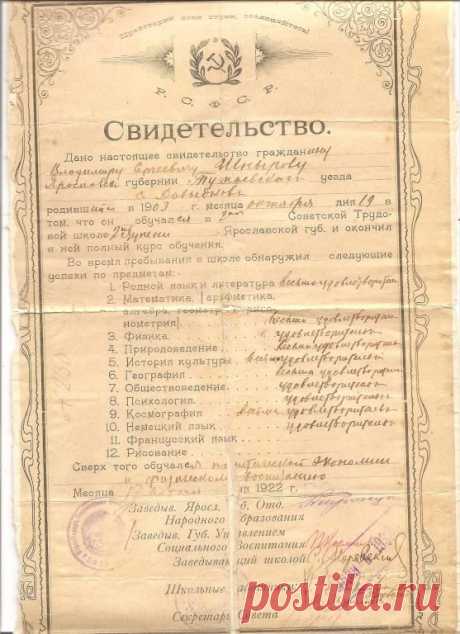 Пролетарии всех стран, соединяйтесь!
Р. С. Ф. С. Р.
Свидетельство.
Дано настоящее свидетельство гражданину
Владимиру Сергеевичу Шнырову
Ярославск губернии Тутаевского уезда
родивший 1903 г. месяца октября дня 19 в
том, что он обучался в Советской Трудо-
вой школе 2й ступени Ярославской губ. и окончил
в ней полный курс обучения.
Во время пребывания в школе обнаружил следующие
успехи по предметам:
1. Родной язык и литература весьма удовлетворительн
2. Математика, [арифметика,
алгебра, геометрия, тригонометрия] весьма удовлетворител
3. Физика удовлетворительн
4. Природоведение весьма удовлетворит
5. История культуры весьма удовлетворительн
6. География весьма удовлетворит
7. Обществоведение удовлетворительн
8. Психология удовлетворительн
9. Космография весьма удовлетворительн
10. Немецкий язык удовлетворительн
11. Французский язык
12. Рисование
Сверх того обучался политической экономии
и физическому воспитанию
Месяца 1922 г.
Заведыв. Яросл. Губ. Отд.
Народного Образования
Заведыв. Губ. Управлением
Социального Воспитания
Заведывающий школой
Школьные
Секретарь Совета
postila.ru